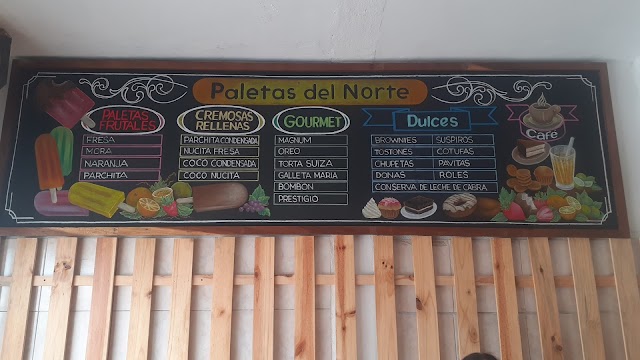 Paletas del Norte
PALETAS
FRUTALES
FRESA
MORA
NARANJA
PARCHITA
CREMOSAS
RELLENAS
PARCHITA CONDENSADA
NUCITA FRESA
COCO CONDENSADA
COCO NUCITA
GOURMET
MAGNUM
OREO
TORTA SUIZA
GALLETA MARIA
BOMBON
PRESTIGIO
Dulces
BROWNIES SUSPIROS
TOSTONES COTUFAS
CHUPETAS PAVITAS
DONAS ROLES
CONSERVA DE LECHE DE CABRA
Cafe